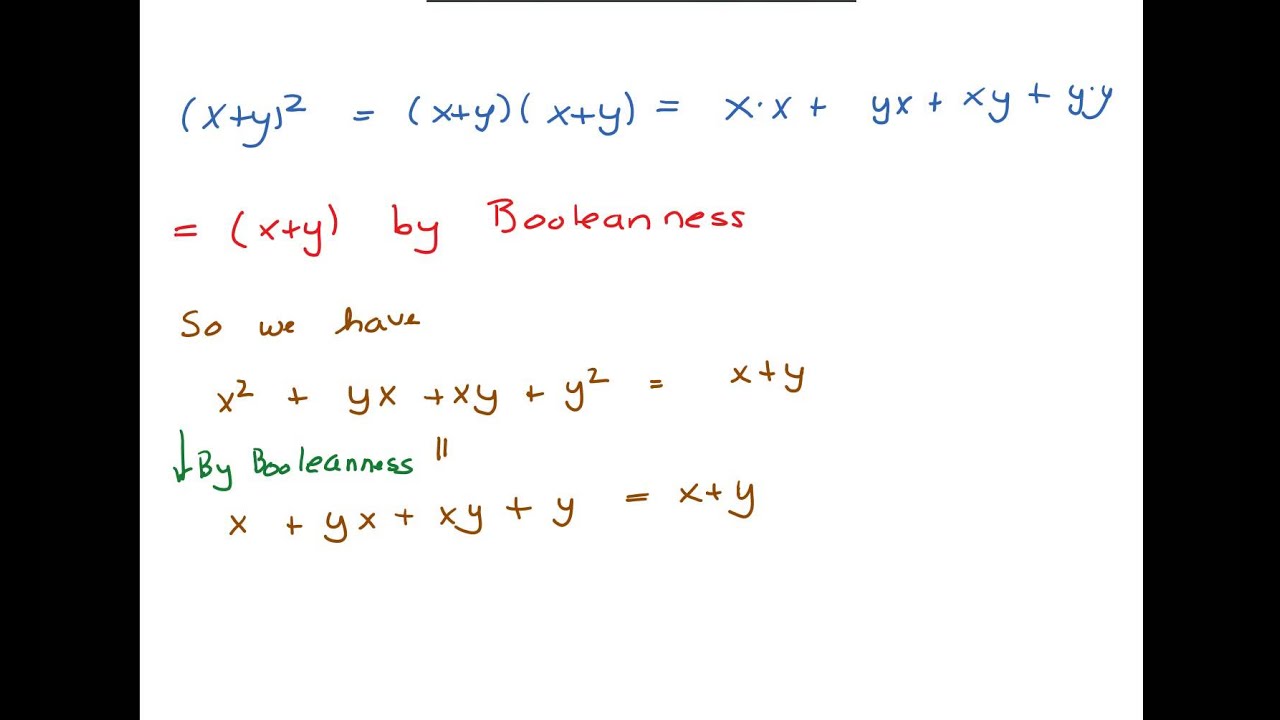 (x+y)² = (x+y)(x+y) = x·x + yx + xy + y·y
= (x+y) by Booleanness
So we have
x² + yx + xy + y² = x+y
↓ By Booleanness ||
x + yx + xy + y = x+y